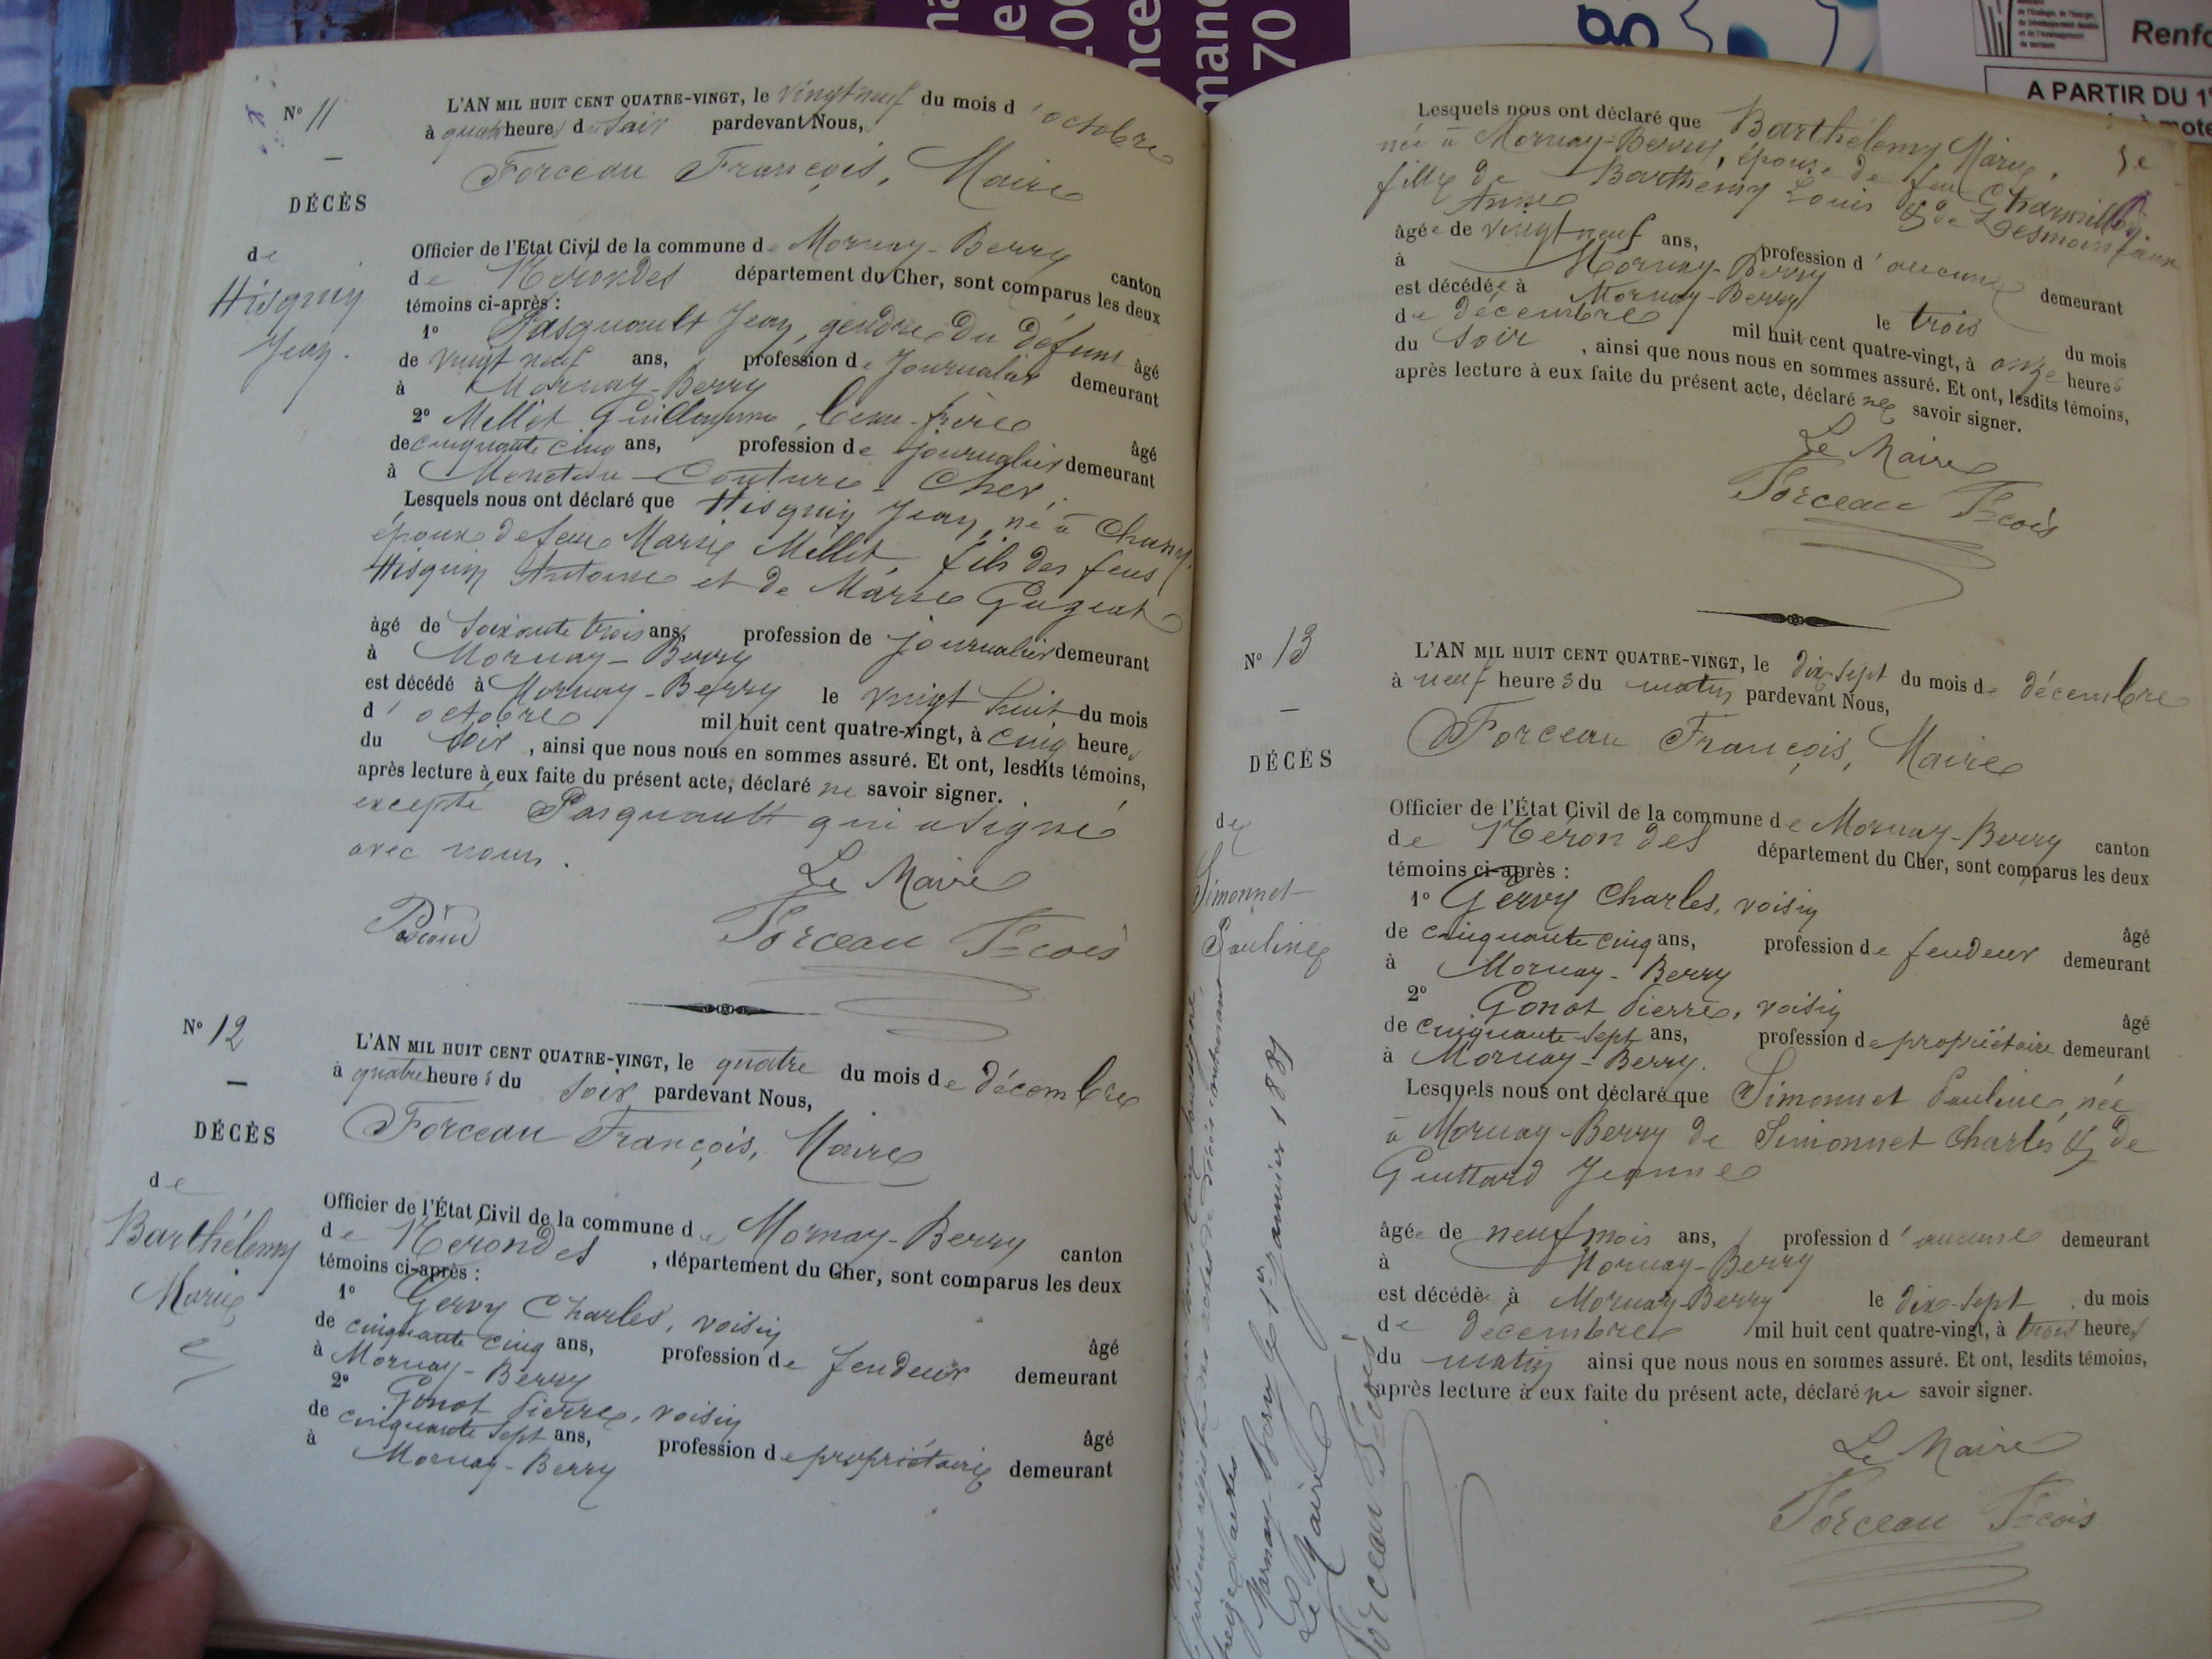 N° 11
L'AN MIL HUIT CENT QUATRE-VINGT, le vingt neuf du mois d'octobre
à quatre heures du soir pardevant Nous,
Forceau François, Maire
DÉCÈS
de
Hisquin
Jean.
Officier de l'Etat Civil de la commune de Mornay-Berry canton
de Nérondes département du Cher, sont comparus les deux
témoins ci-après :
1° Pasquault Jean, gendre du défunt âgé
de vingt neuf ans, profession de Journalier demeurant
à Mornay-Berry
2° Millet Guillaume, beau-frère âgé
de cinquante cinq ans, profession de journalier demeurant
à Menetou-Couture - Cher.
Lesquels nous ont déclaré que Hisquin Jean, né à
époux de feue Marie Millet, fils des feus
Hisquin Antoine et de Marie
âgé de soixante trois ans, profession de journalier demeurant
à Mornay-Berry
est décédé à Mornay-Berry le vingt huit du mois
d'octobre mil huit cent quatre-vingt, à cinq heures
du soir, ainsi que nous nous en sommes assuré. Et ont, lesdits témoins,
après lecture à eux faite du présent acte, déclaré ne savoir signer.
excepté Pasquault qui a signé
avec nous.
Le Maire
Forceau Fcois
N° 12
L'AN MIL HUIT CENT QUATRE-VINGT, le quatre du mois de décembre
à quatre heures du soir pardevant Nous,
Forceau François, Maire
DÉCÈS
de
Barthélemy
Marie
Officier de l'État Civil de la commune de Mornay-Berry canton
de Nérondes, département du Cher, sont comparus les deux
témoins ci-après :
1° Gervy Charles, voisin âgé
de cinquante cinq ans, profession de fendeur demeurant
à Mornay-Berry
2° Gonot Pierre, voisin âgé
de cinquante sept ans, profession de propriétaire demeurant
à Mornay-Berry
Lesquels nous ont déclaré que Barthélemy Marie,
née à Mornay-Berry, épouse de feu Charmillon
fille de Barthélemy Louis & de
Anne
âgée de vingt neuf ans, profession d'aucune demeurant
à Mornay-Berry
est décédée à Mornay-Berry le trois du mois
de décembre mil huit cent quatre-vingt, à onze heures
du soir, ainsi que nous nous en sommes assuré. Et ont, lesdits témoins,
après lecture à eux faite du présent acte, déclaré ne savoir signer.
Le Maire
Forceau Fcois
N° 13
L'AN MIL HUIT CENT QUATRE-VINGT, le dix-sept du mois de décembre
à neuf heures du matin pardevant Nous,
Forceau François, Maire
DÉCÈS
de
Simonnet
Pauline
Officier de l'État Civil de la commune de Mornay-Berry canton
de Nérondes département du Cher, sont comparus les deux
témoins ci-après :
1° Gervy Charles, voisin âgé
de cinquante cinq ans, profession de fendeur demeurant
à Mornay-Berry
2° Gonot Pierre, voisin âgé
de cinquante-sept ans, profession de propriétaire demeurant
à Mornay-Berry.
Lesquels nous ont déclaré que Simonnet Pauline, née
à Mornay-Berry de Simonnet Charles & de
Guittard Jeanne
âgée de neuf mois ans, profession d'aucune demeurant
à Mornay-Berry
est décédée à Mornay-Berry le dix-sept du mois
de décembre mil huit cent quatre-vingt, à trois heures
du matin ainsi que nous nous en sommes assuré. Et ont, lesdits témoins,
après lecture à eux faite du présent acte, déclaré ne savoir signer.
Le Maire
Forceau Fcois
treize actes
Mornay-Berry le 1er janvier 1881
Le Maire
Forceau Fcois
70
Renfo
A PARTIR DU 1